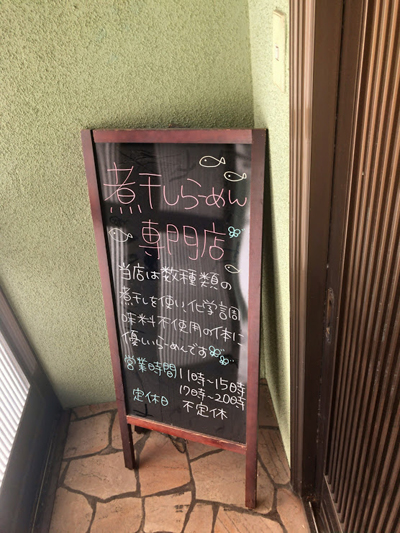 煮干しらーめん
専門店
当店は数種類の
煮干しを使い化学調
味料不使用の体に
優しいらーめんです
営業時間 11時～15時
17時～20時
定休日 不定休